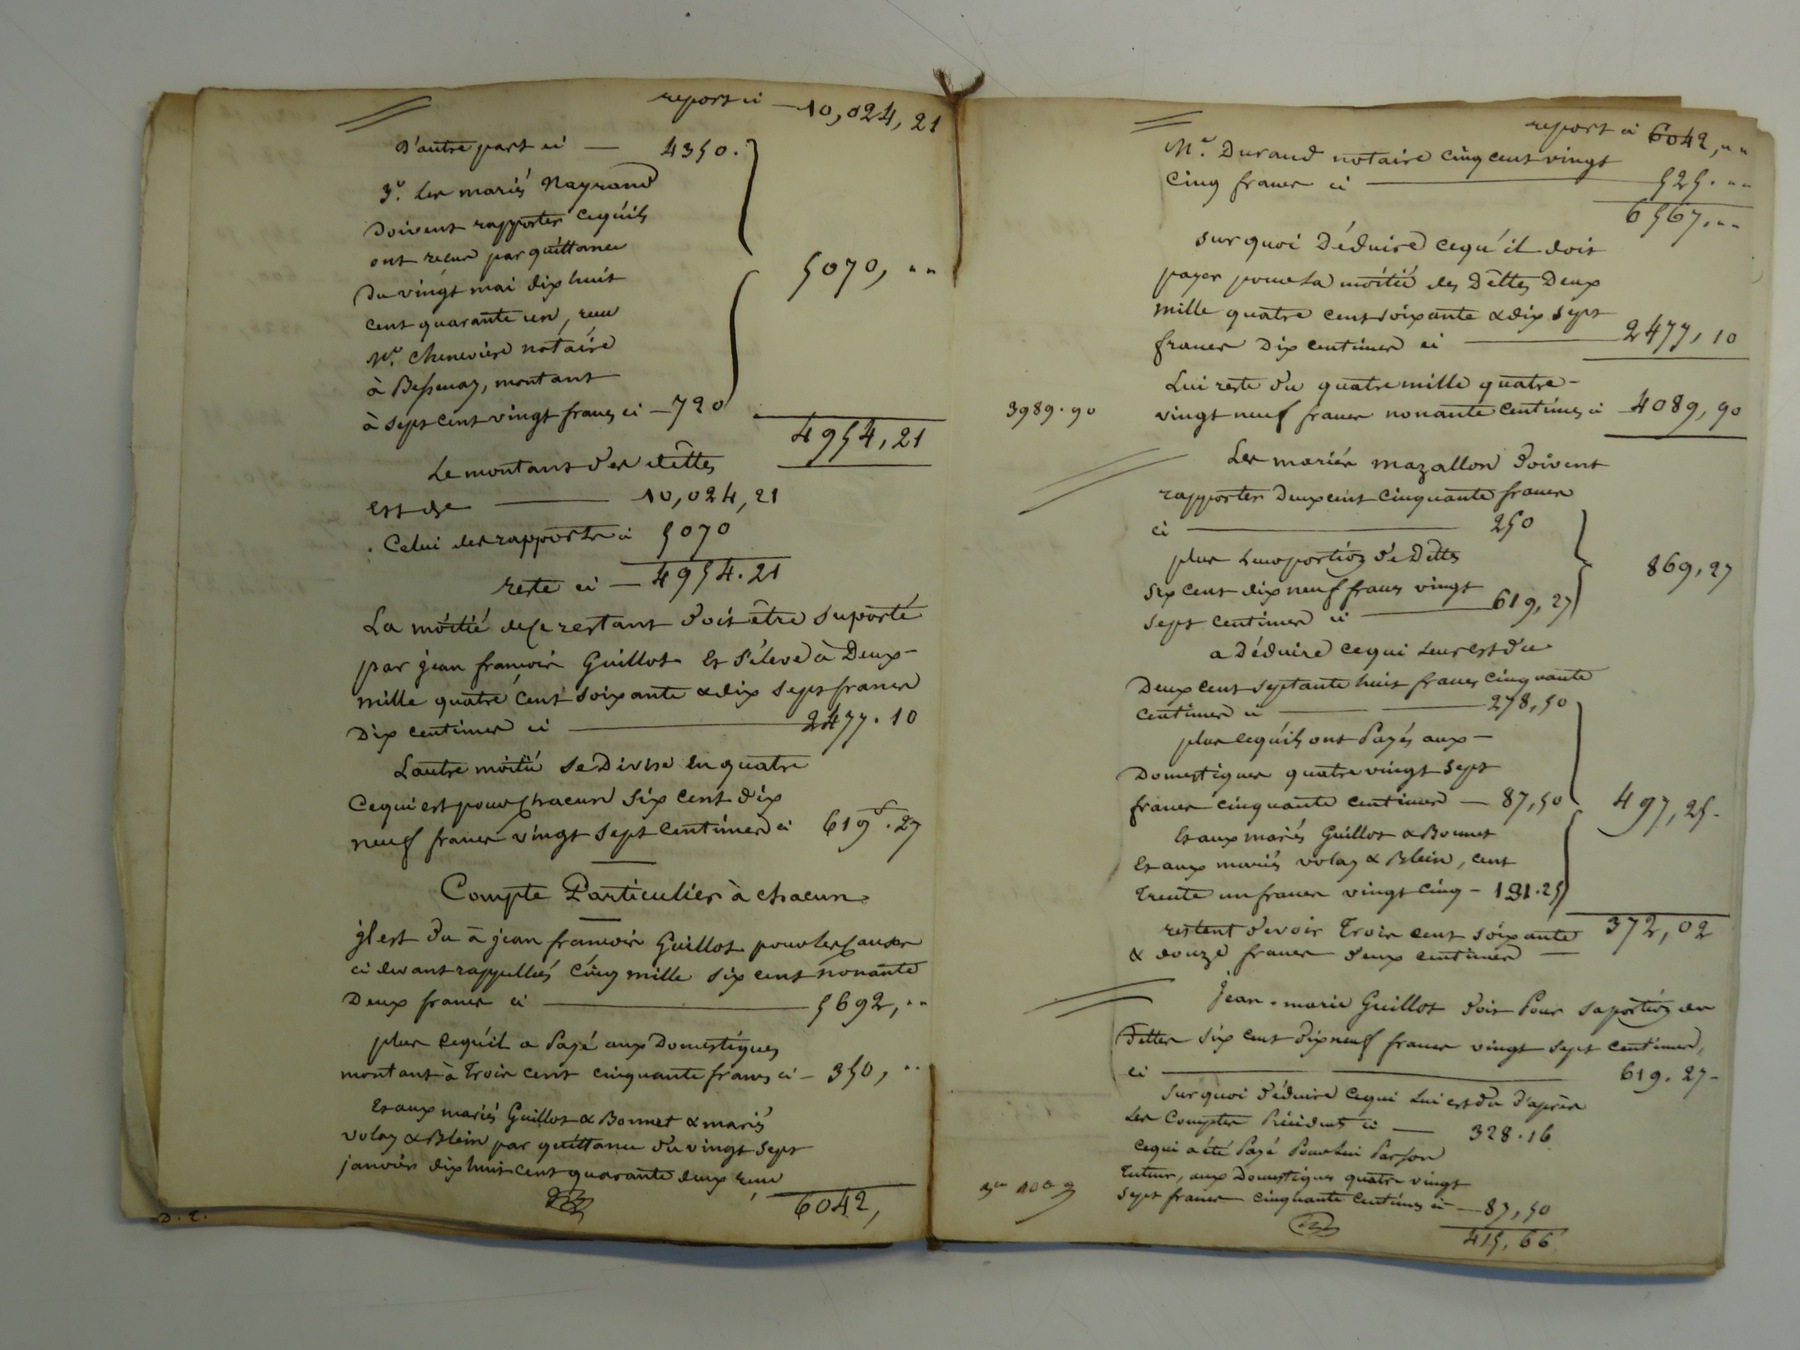 report ci — 10,024,21
D'autre part ci — 4350.
3.º Les mariés Nayrand
doivent rapporter cequ'ils
ont recus par quittance
du vingt mai dix huit
cent quarante un, recu
Mᵉ. Chenevière notaire
à Bessenay, montant
à sept cent vingt francs ci — 720
5070, ""
4954,21
Le montant des dettes
est de — 10,024,21
. Celui des rapports ci 5070
reste ci — 4954.21
La moitié de ce restant doit être suporté
par jean françois Guillot Et s'éleve à Deux-
mille quatre cent soixante & dix sept francs
Dix centimes ci — 2477.10
L'autre moitié se Divise En quatre
Cequi est pour Chacun Six cent dix
neuf francs vingt sept centimes ci 619f.27
Compte Particulier à chacun
jl est du à jean françois Guillot pour les Causes
ci devant rappellés Cinq mille six cent nonante
Deux francs ci — 5692, ""
plus cequ'il a Payé aux Domestiques
montant à Trois cent cinquante francs ci — 350, ""
Et aux mariés Guillot & Bonnet & mariés
volay & Blein par quittance du vingt sept
janvier dix huit cent quarante deux recu
6042,
D. L.
report ci 6042, ""
Mᵉ. Durand notaire cinq cent vingt
Cinq francs ci — 525. ""
6567, ""
Sur quoi Déduire cequ'il doit
payer pour la moitié des Dettes Deux
mille quatre cent soixante & dix sept
francs Dix centimes ci — 2477,10
Lui reste du quatre mille quatre-
vingt neuf francs nonante centimes ci — 4089,90
3989.90
Les mariés mazallon doivent
rapporter Deux cent cinquante francs
ci — 250
plus Leur portion de Dettes
Six cent dix neuf francs vingt
sept centimes ci — 619,27
869,27
a Déduire cequi Leur est du
Deux cent septante huit francs cinquante
centimes ci — 278,50
plus cequ'ils ont Payés aux —
Domestiques quatre vingt sept
francs cinquante centimes — 87,50
Et aux mariés Guillot & Bonnet
Et aux mariés volay & Blein, cent
Trente un francs vingt cinq — 131.25
497,25.
restent devoir Trois cent soixante 372,02
& douze francs deux centimes —
Jean-marie Guillot doit Pour sa portion des
Dettes six cent dix neuf francs vingt sept centimes,
ci — 619.27-
Sur quoi déduire cequi Lui est du d'après
Les Comptes Précidents ci — 328.16
Cequi a été Payé Pour Lui Par son
Tuteur, aux Domestiques quatre vingt
Sept francs cinquante centimes ci — 87,50
415,66